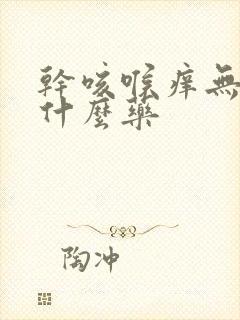 幹咳喉痒無
什麼藥
陶冲